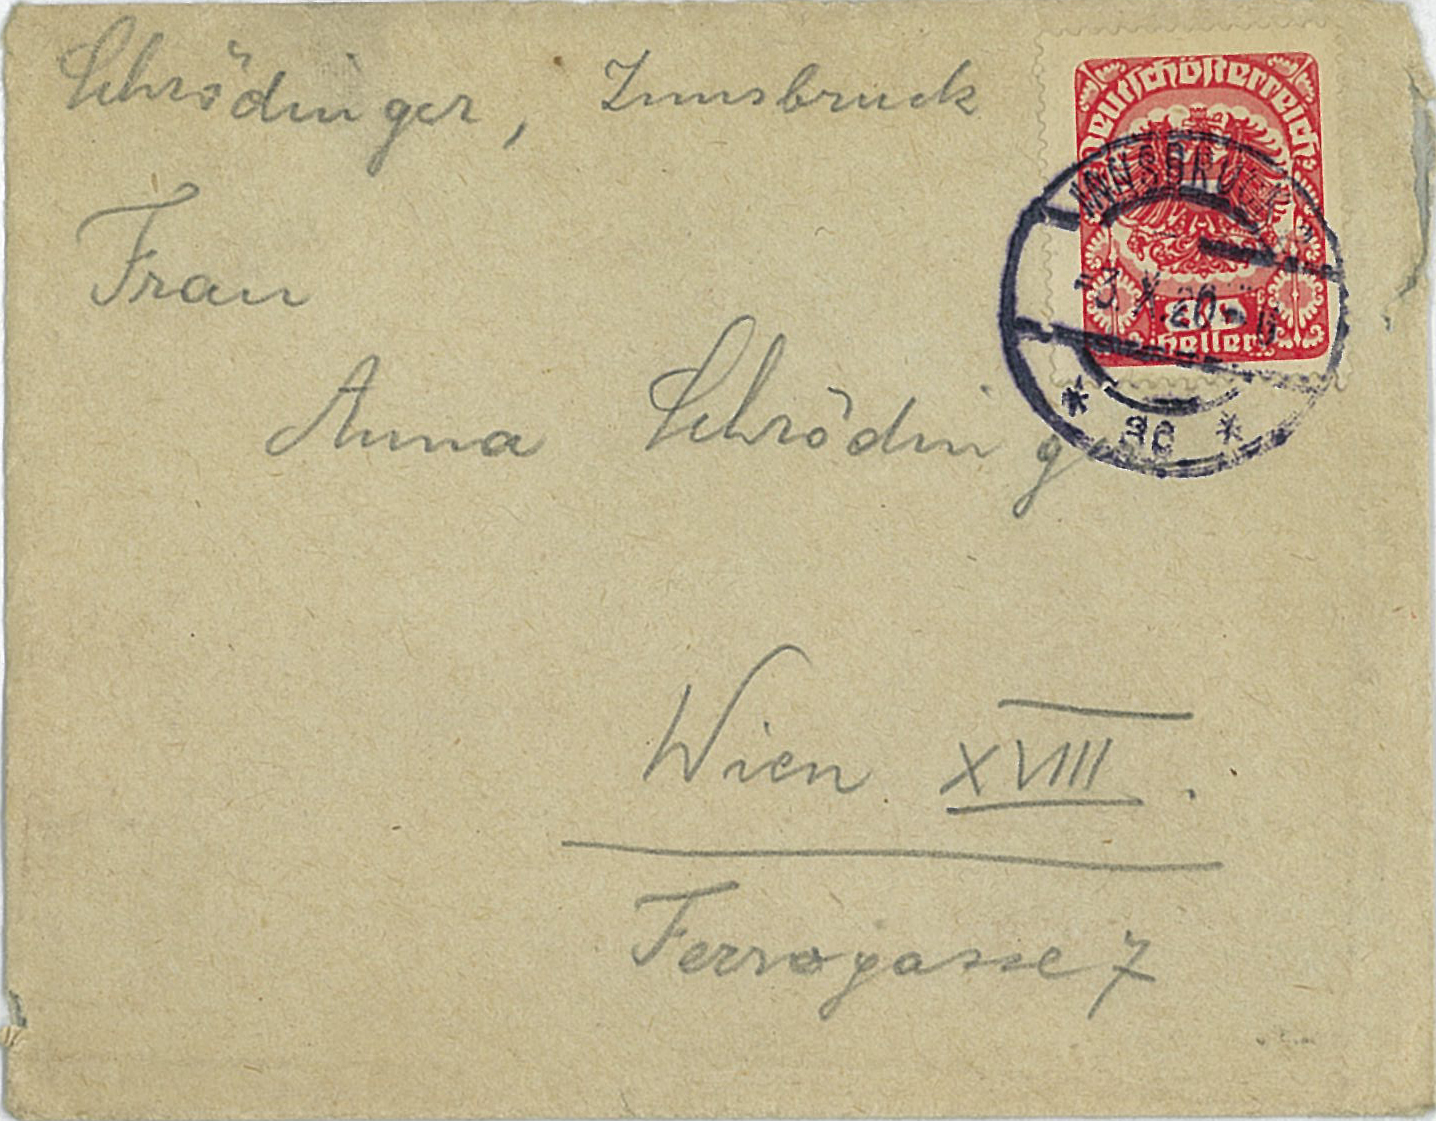 Schrödinger, Innsbruck
Deutschösterreich
INNSBRUCK
-3.X.20
heller
Frau
Anna Schrödinger
Wien XVIII.
Ferrogasse 7